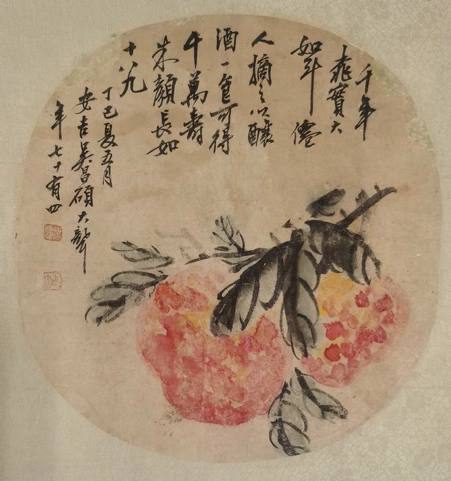 千年
桃實大
如斗僊
人摘之以釀
酒一食可得
千萬壽
朱顏長如
十八九
丁巳夏五月
安吉吳昌碩大聾
年七十有四